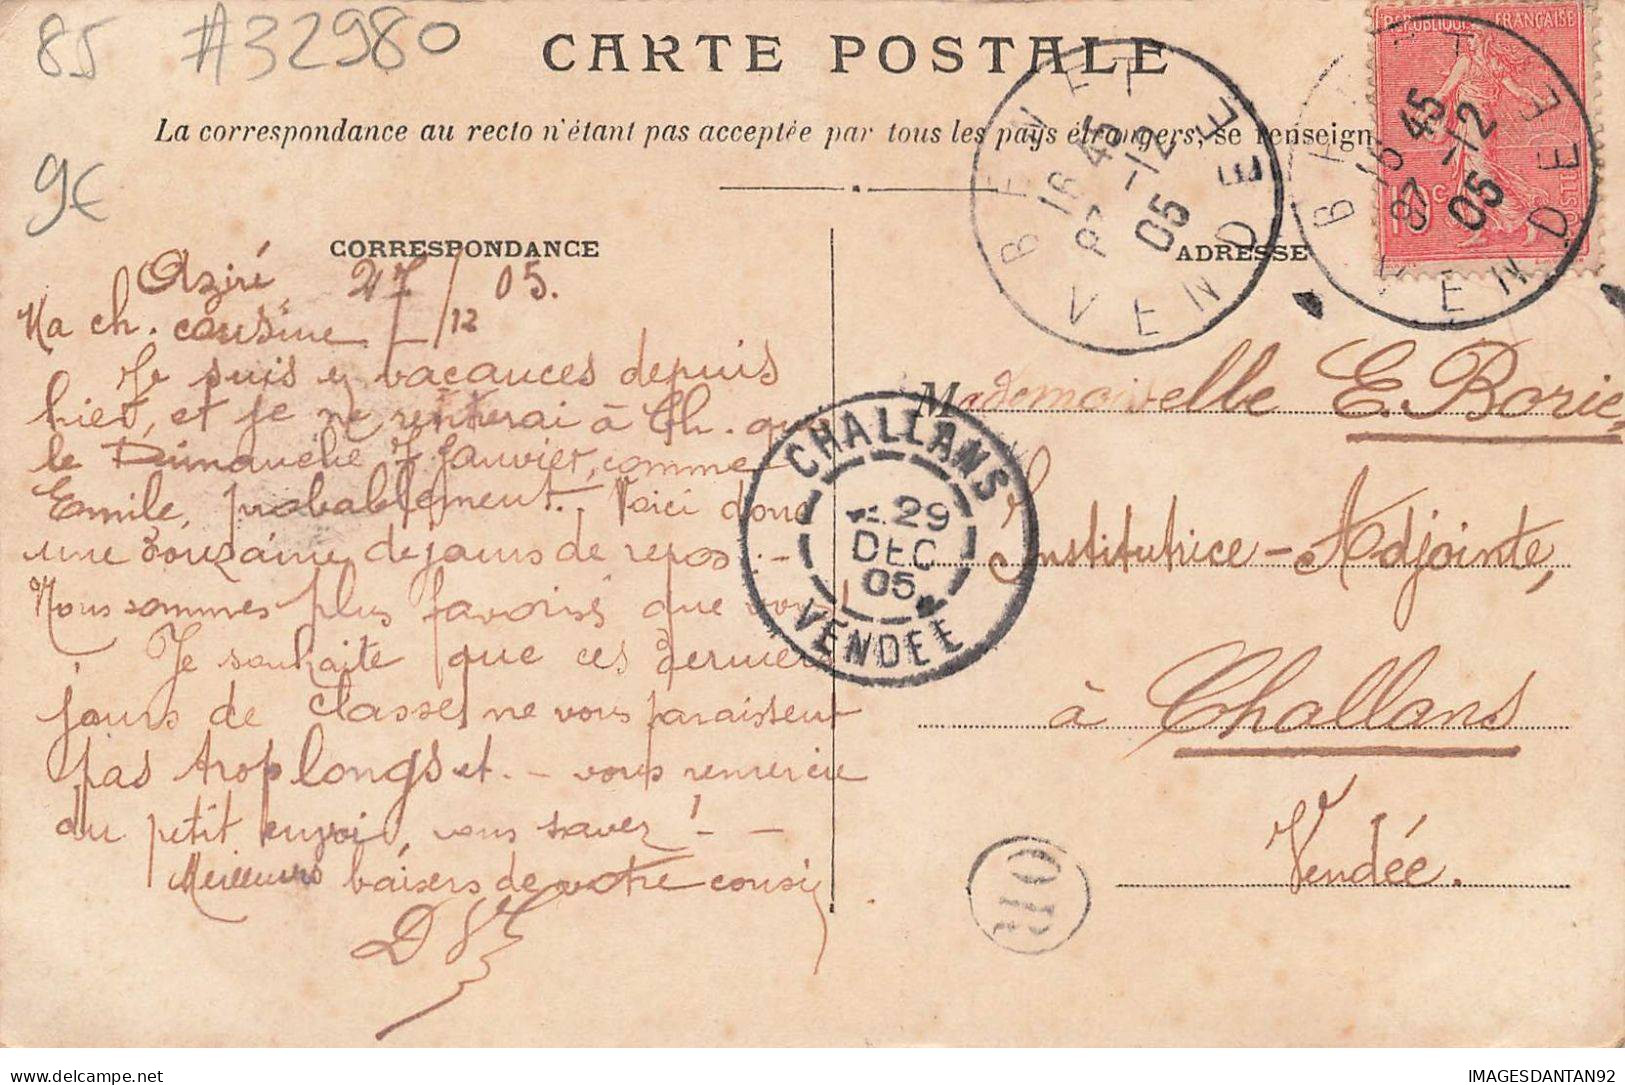 85 #32980
CARTE POSTALE
La correspondance au recto n'étant pas acceptée par tous les pays étrangers, se renseign
9€
CORRESPONDANCE
Aziré 27/12 05.
Ma ch. cousine
Je suis en vacances depuis
hier, et je ne rentrerai à Ch. que
le Dimanche 7 Janvier, comme
Emile, probablement. Voici donc
une douzaine de jours de repos. -
Nous sommes plus favorisés que vous!
Je souhaite que ces derniers
jours de classe ne vous paraissent
pas trop longs et. - vous remercie
du petit envoi, vous savez! - -
Meilleurs baisers de votre cousin
D
ADRESSE
Mademoiselle E. Borie,
Institutrice-Adjointe,
à Challans
Vendée.
REPUBLIQUE FRANÇAISE
10c
POSTES
BENET
16 45
27 -12
05
VENDEE
BENET
16 45
27 -12
05
VENDEE
CHALLANS
29
DEC
05
VENDEE
IMAGESDANTAN92